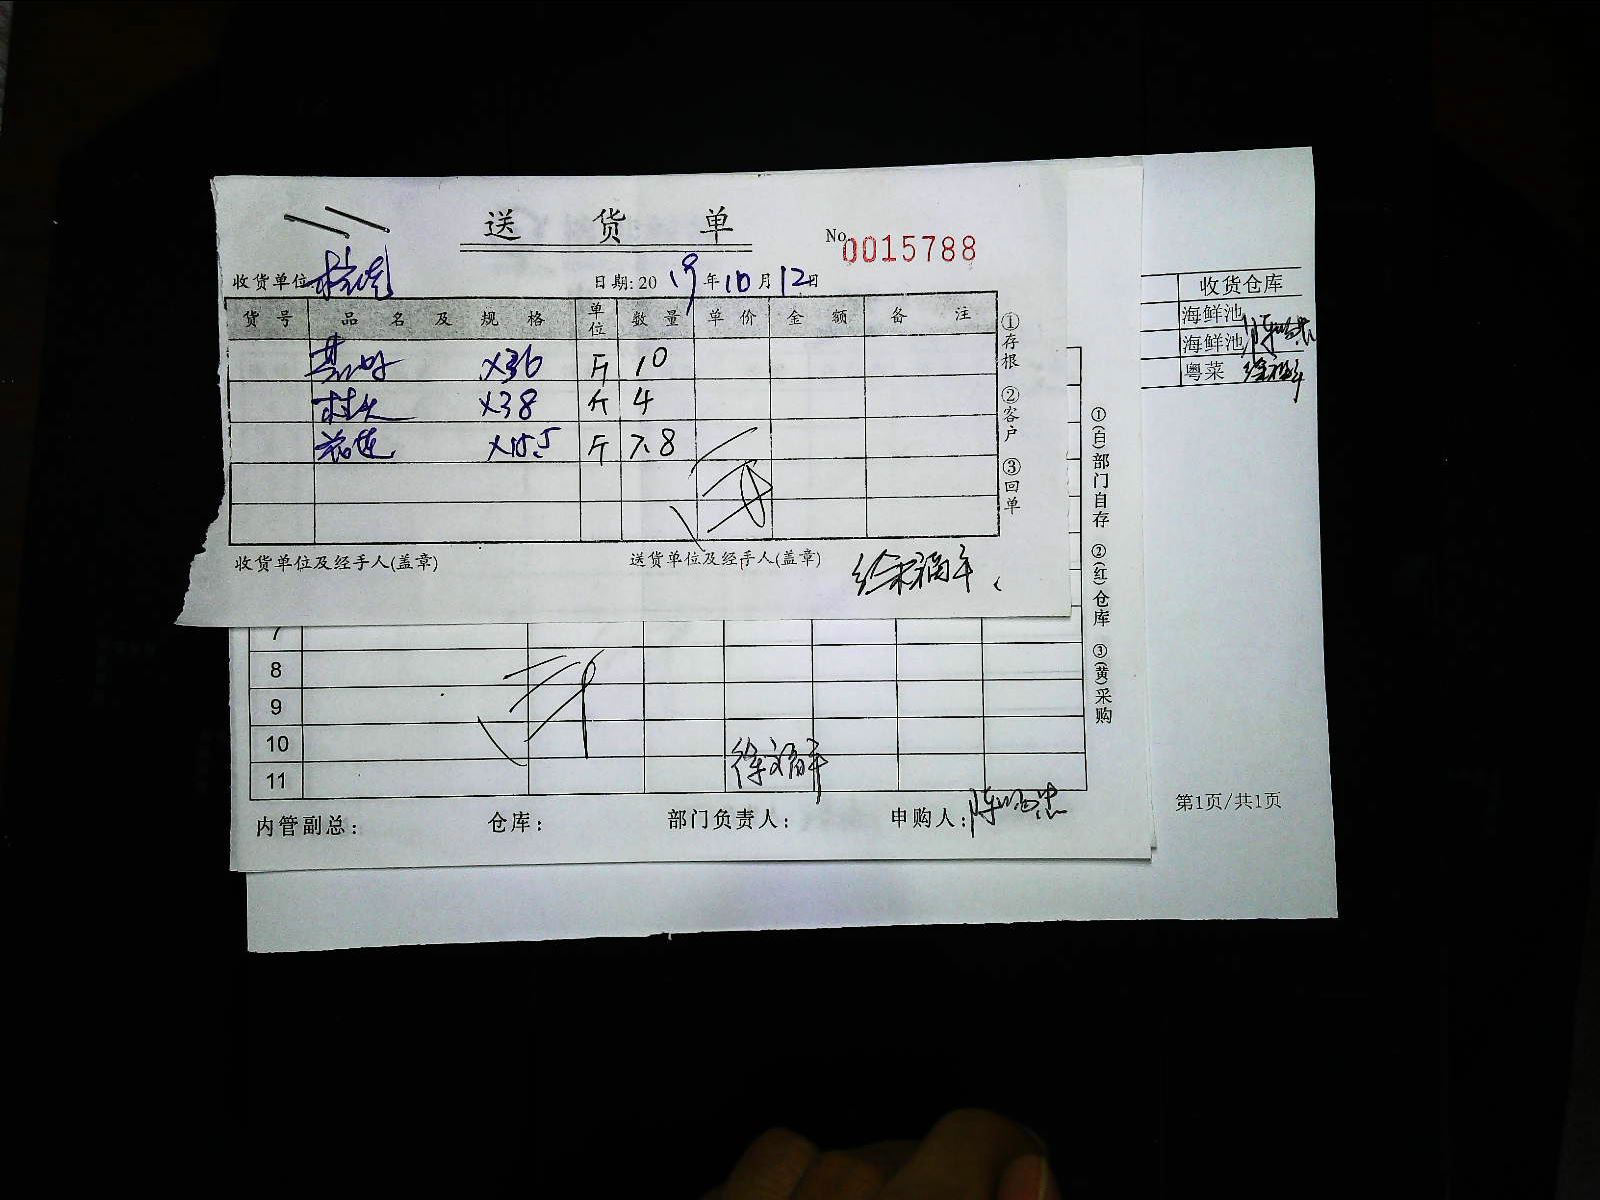 送 货 单
No 0015788
收货单位 日期: 2019年10月12日
货号 品名及规格 单位 数量 单价 金额 备注
×36 斤 10
×38 斤 4
×15.5 斤 7.8
①存根 ②客户 ③回单
收货单位及经手人(盖章) 送货单位及经手人(盖章) 徐福平
7
8
9
10
11
徐福平
内管副总: 仓库: 部门负责人: 申购人:
①(白)部门自存 ②(红)仓库 ③(黄)采购
收货仓库
海鲜池
海鲜池
粤菜 徐福平
第1页/共1页